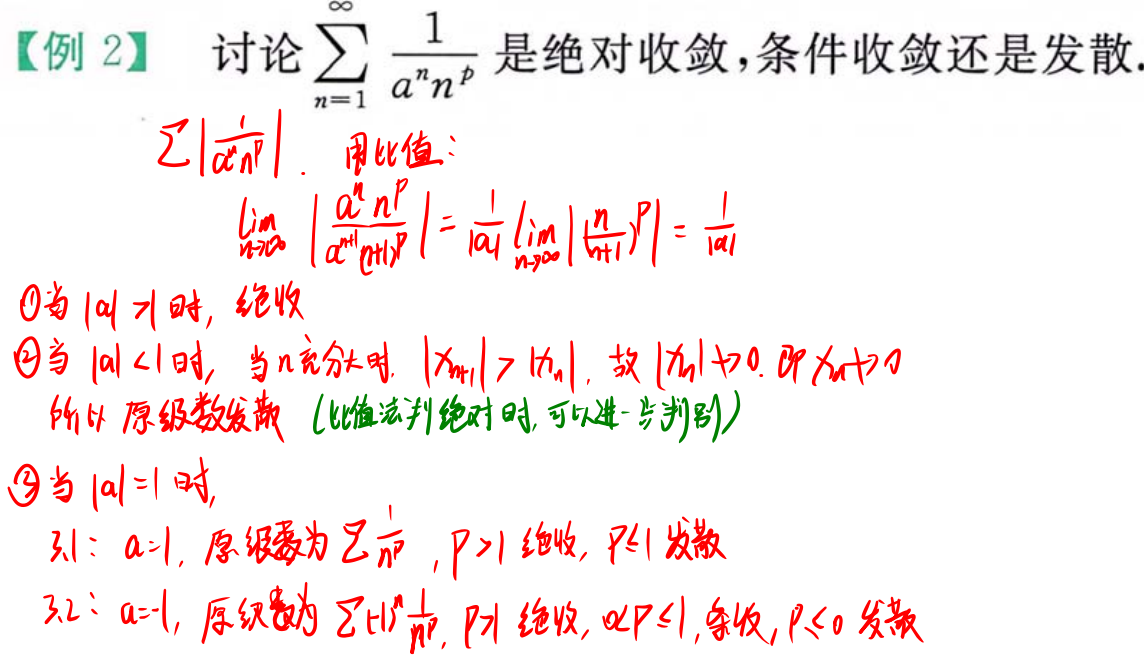 【例 2】 讨论 $\sum_{n=1}^{\infty} \frac{1}{a^n n^p}$ 是绝对收敛,条件收敛还是发散.
$\Sigma \left| \frac{1}{a^n n^p} \right|$. 用比值:
$\lim_{n\to\infty} \left| \frac{a^n n^p}{a^{n+1}(n+1)^p} \right| = \frac{1}{|a|} \lim_{n\to\infty} \left| \left(\frac{n}{n+1}\right)^p \right| = \frac{1}{|a|}$
①当 |a| >1 时, 绝收
②当 |a| <1 时, 当n充分大时. $|x_{n+1}| > |x_n|$, 故 $|x_n| \not\to 0$. 即 $x_n \not\to 0$
所以 原级数发散 (比值法判绝对时,可以进一步判别)
③当 |a|=1 时,
3.1: a=1, 原级数为 $\Sigma \frac{1}{n^p}$, P>1 绝收, P≤1 发散
3.2: a=-1, 原级数为 $\Sigma (-1)^n \frac{1}{n^p}$, P>1 绝收, 0<P≤1, 条收, P≤0 发散